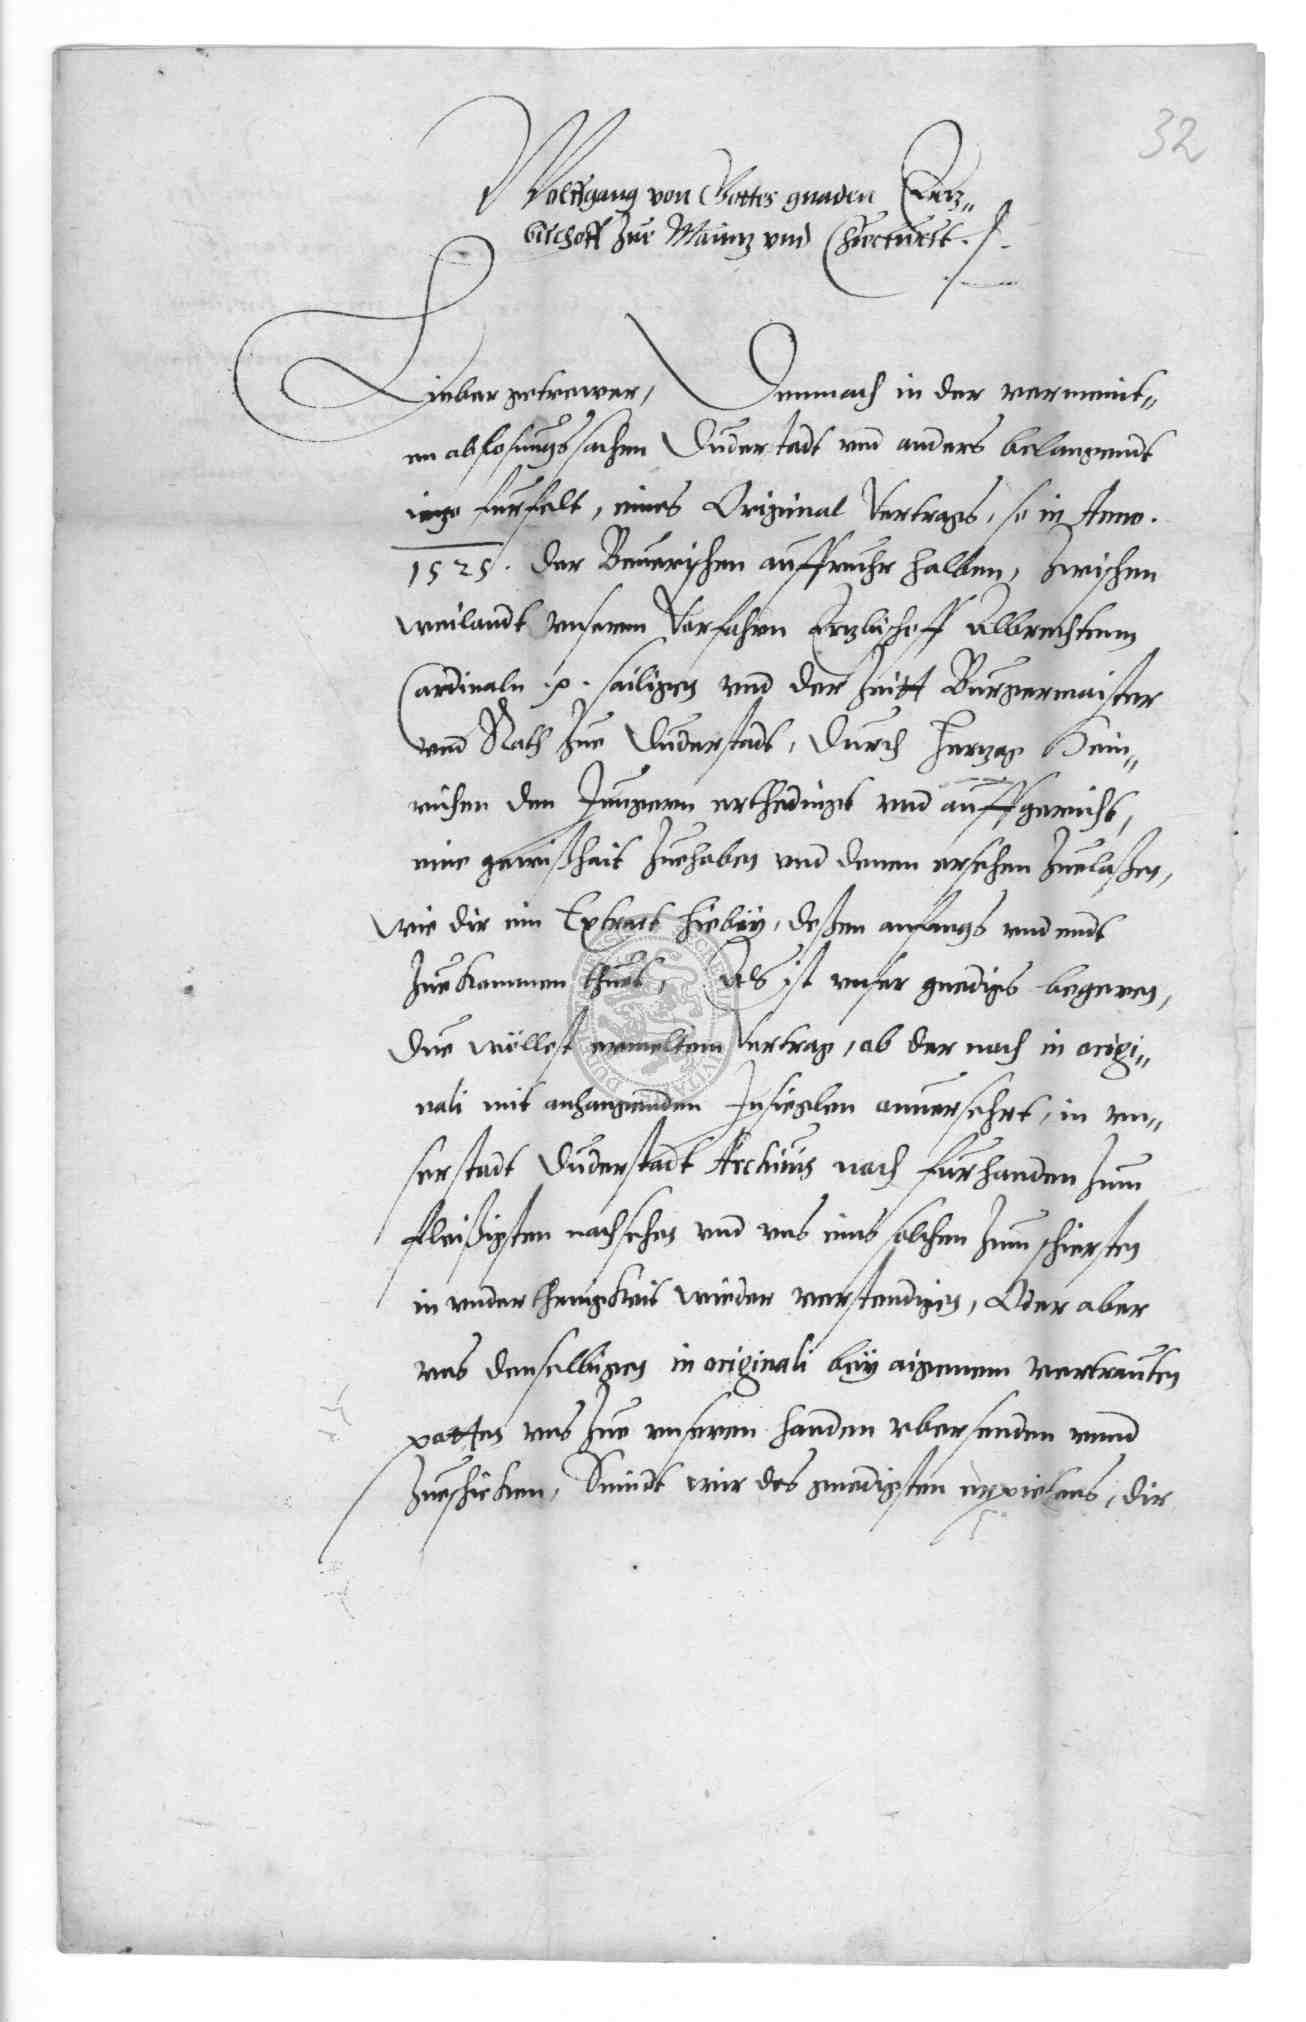 32
Wolffgang von Gottes gnaden Ertz„
bischoff Zue Maintz und Churfurst. /.
Lieber getrewer, Demnach in der vermeint„
en ablosungs sachen Duderstadt vnd anders belangendt
ietzo fürfelt, eines Original Vertrags, so in Anno.
1525. der Beuerischen auffruhr halben, zwischen
weilandt vnserem Vorfahrn Ertzbischoff Albrechtenn
Cardinaln .p. säiligen vnd der Zeitt Burgermaister
vnd Rath Zue Duderstadt, Durch Hertzog Hein„
richen den Jungern erthedingt vnd auffgericht,
eine gewißhait Zuehaben vnd denen ersehen Zuelaßen,
wie dir ein Extract hiebëy, deßen anfangs vnd endt
Zuekommen thuet, Als ist vnser gnedigs begeren,
Due wöllest ermeltem Vertrag, ob der noch in origi„
nali mit anhangenden Insieglen onuersehrt, in vn„
ser stadt Duderstadt Archiuis noch fürhanden Zum
fleißigsten nachsehen vnd vns eines solchen Zum schiersten
in vnderthenigkeit wieder verstendigen, Oder aber
vns denselbigen in originali bëy aigenem vertrauten
potten vns Zue vnseren handen vbersenden vnnd
Zueschicken, Seindt wir des gnedigsten erpietens, dir